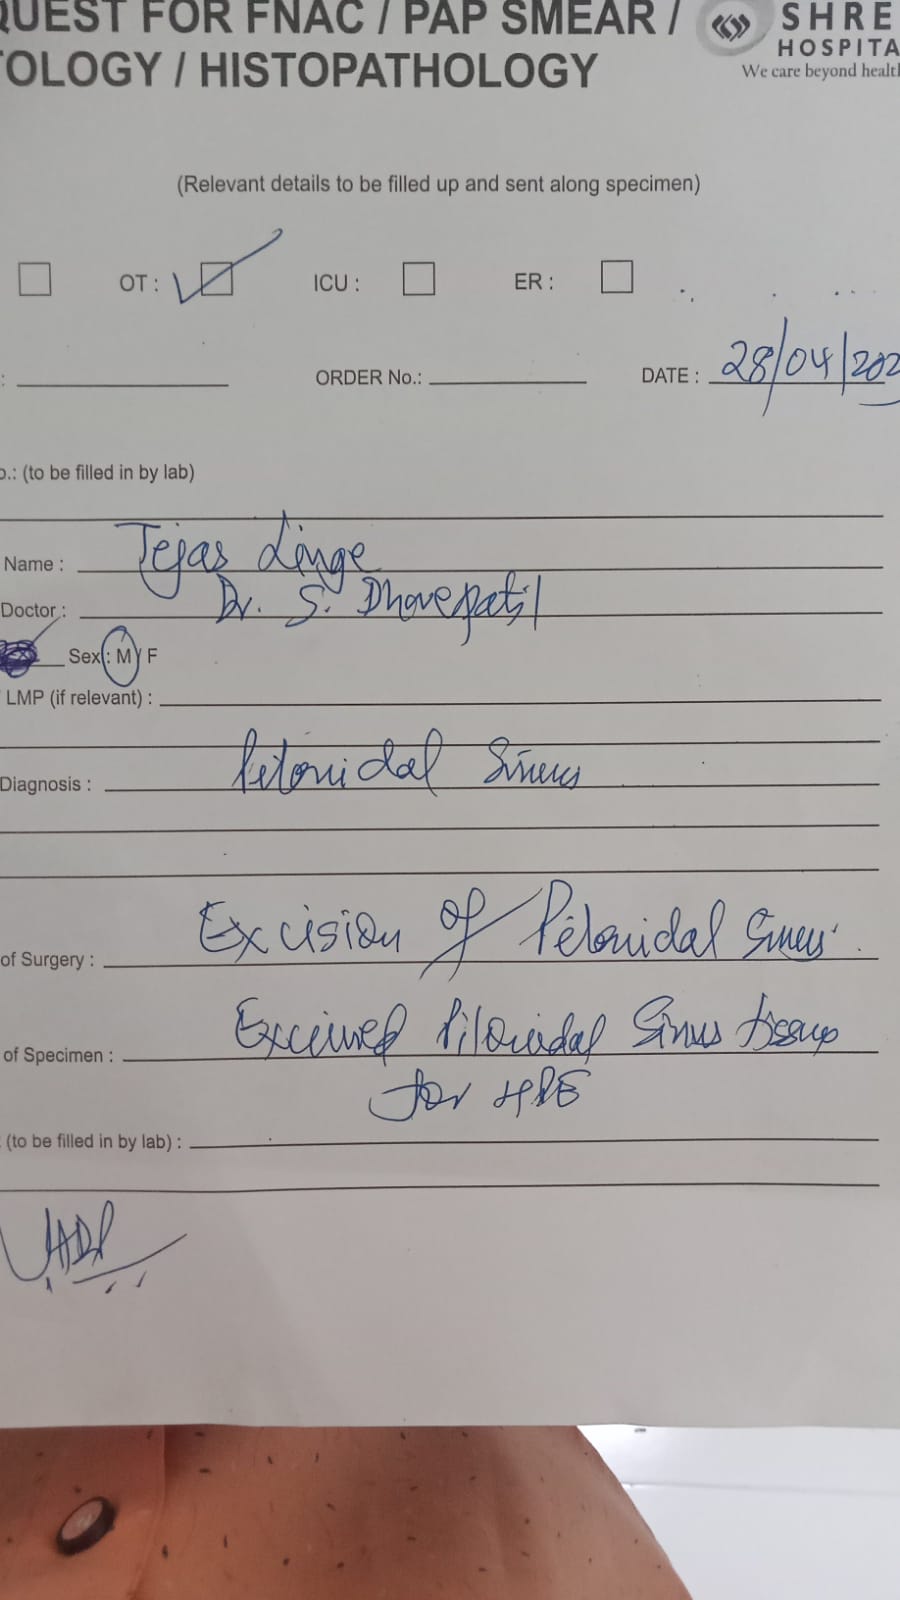 QUEST FOR FNAC / PAP SMEAR /
TOLOGY / HISTOPATHOLOGY
SHRE
HOSPITA
We care beyond healt
(Relevant details to be filled up and sent along specimen)
OT : ICU : ER :
: ORDER No.: DATE : 28/04/202
o.: (to be filled in by lab)
Name : Tejas Linge
Doctor : Dr. S. Dhovepatil
Sex : M / F
LMP (if relevant) :
Diagnosis : Pilonidal Sinus
of Surgery : Excision of Pilonidal Sinus
of Specimen : Excised Pilonidal Sinus tissue
for HPE
(to be filled in by lab) :